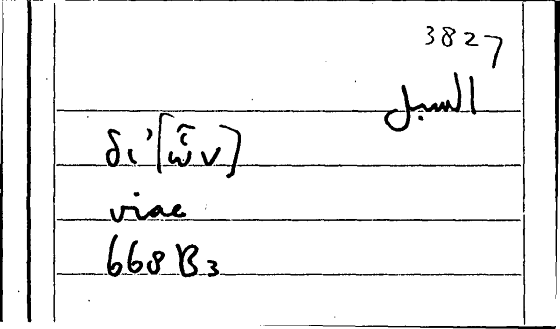 3827
السبل
δι'[ὧν]
viae
668 B3